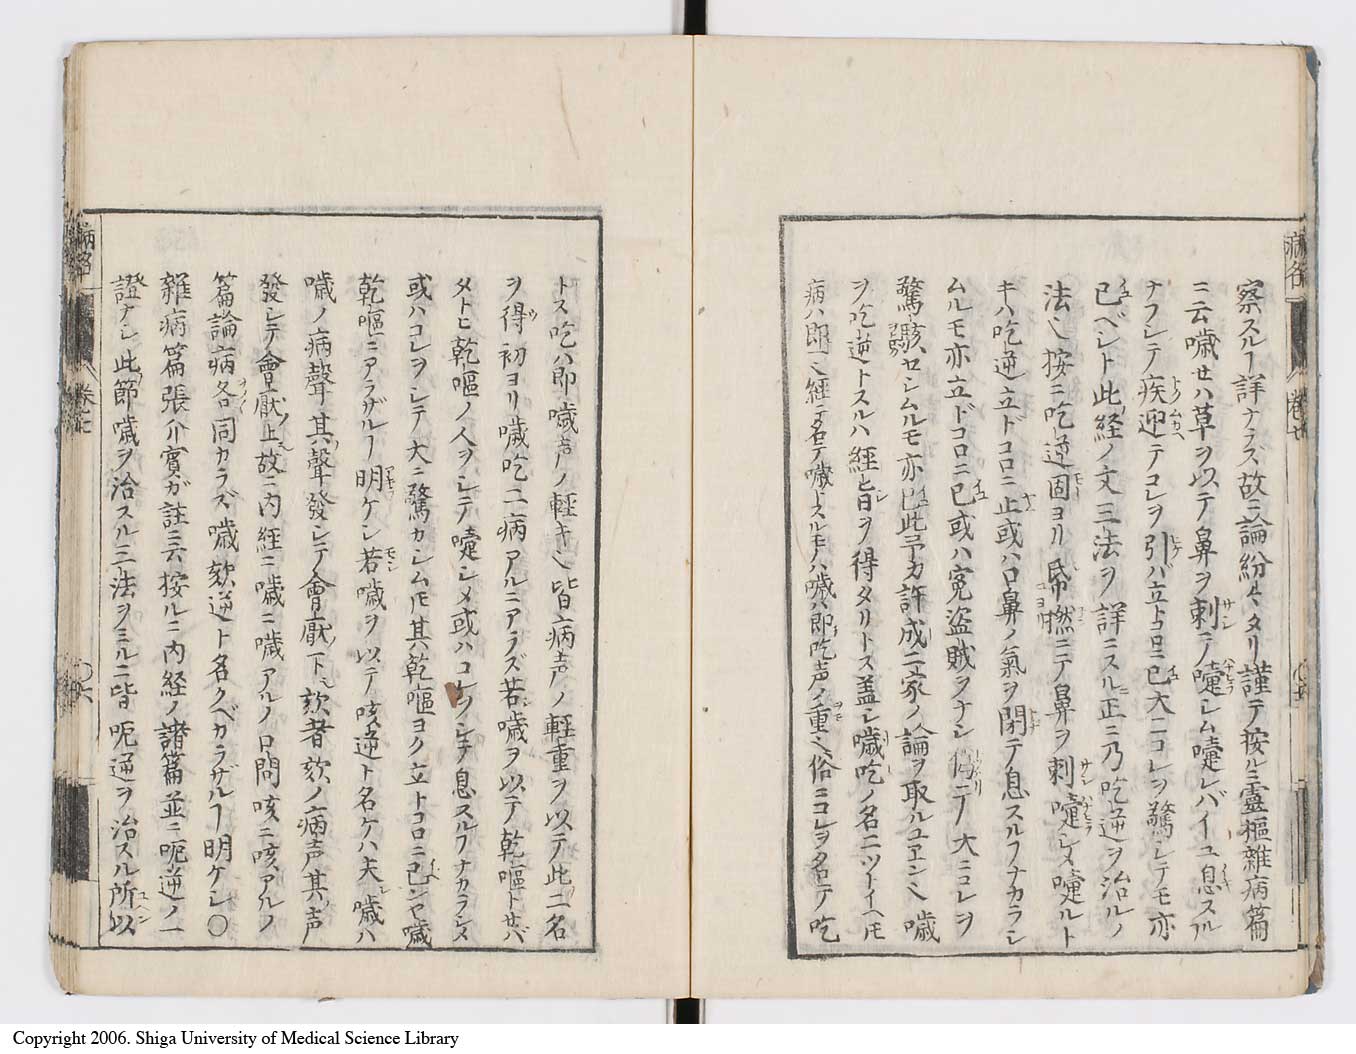 察スルヿ詳ナラズ故ニ論紛々タリ謹テ按ルニ靈樞雜病篇
ニ云噦セハ草ヲ以テ鼻ヲ刺テ嚔シム嚔レバイユ息スル
ナフシテ疾迎テコレヲ引ハ立トコロニ已大ニコレヲ驚シテモ亦
已ベシト此経ノ文三法ヲ詳ニスル正ニ乃吃逆ヲ治ルノ
法也按ニ吃逆固ヨリ帋撚ニテ鼻ヲ刺嚔シメ嚔ルト
キハ吃逆立ドコロニ止或ハ口鼻ノ氣ヲ閉テ息スルヿナカラシ
ムルモ亦立ドコロニ已或ハ寃盜賊ヲナシ佯テ大ニコレヲ
驚駭セシムルモ亦已此予カ許成二家ノ論ヲ取ルユヱン也噦
ヲ吃逆トスルハ経ト日ヲ得タリトス蓋シ噦吃ノ名二ツトイヘモ
病ハ即一也経ニ名テ噦トスルモノハ噦ハ即吃声ノ重也俗ニコレヲ名テ吃
トス吃ハ即噦声ノ輕キ也皆病声ノ軽重ヲ以テ此二名
ヲ得初ヨリ噦吃二病アルニアラズ若噦ヲ以テ乾嘔トセバ
タトヒ乾嘔ノ人ヲシテ嚔シメ或ハコレヲシテ息スルヿナカラシメ
或ハコレヲシテ大ニ驚カシムモ其乾嘔ヨク立トコロニ已ンヤ噦
乾嘔ニアラザルヿ明ケシ若噦ヲ以テ咳逆ト名ケハ夫噦ハ
噦ノ病聲其聲發シテ會厭下ニ欬者欬ノ病声其声
發シテ會厭ノ上ニ故ニ内經ニ噦ニ噦アルノ口問咳ニ咳アルノ
篇論病各同カラズ噦欬逆ト名クベカラザルヿ明ケシ〇
雜病篇張介賓ガ註ニ云按ルニ内経ノ諸篇並ニ呃逆ノ一
證ナシ此節噦ヲ治スル三法ヲミルニ皆呃逆ヲ治スル所以
病名
卷七
病名
卷七
〇六